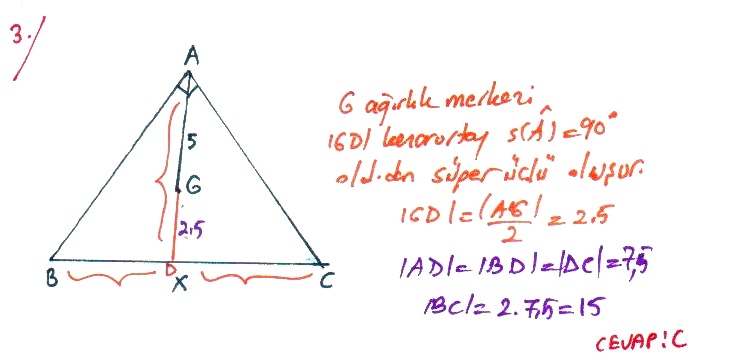 3.
A
5
G
2.5
B
D
X
C
G ağırlık merkezi
|GD| kenarortay s(Â)=90°
old.dan süper üçlü oluşur.
|GD|=|AG|/2=2.5
|AD|=|BD|=|DC|=7,5
|BC|=2.7,5=15
CEVAP:C